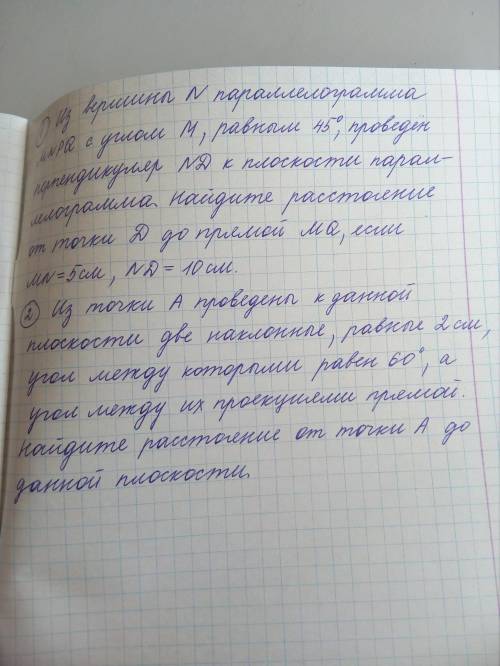 1) Из вершины N параллелограмма
MNPQ с углом M, равным 45°, проведен
перпендикуляр ND к плоскости парал-
лелограмма. Найдите расстояние
от точки D до прямой MQ, если
MN = 5 см, ND = 10 см.
2 Из точки A проведены к данной
плоскости две наклонные, равные 2 см,
угол между которыми равен 60°, а
угол между их проекциями прямой.
Найдите расстояние от точки A до
данной плоскости.